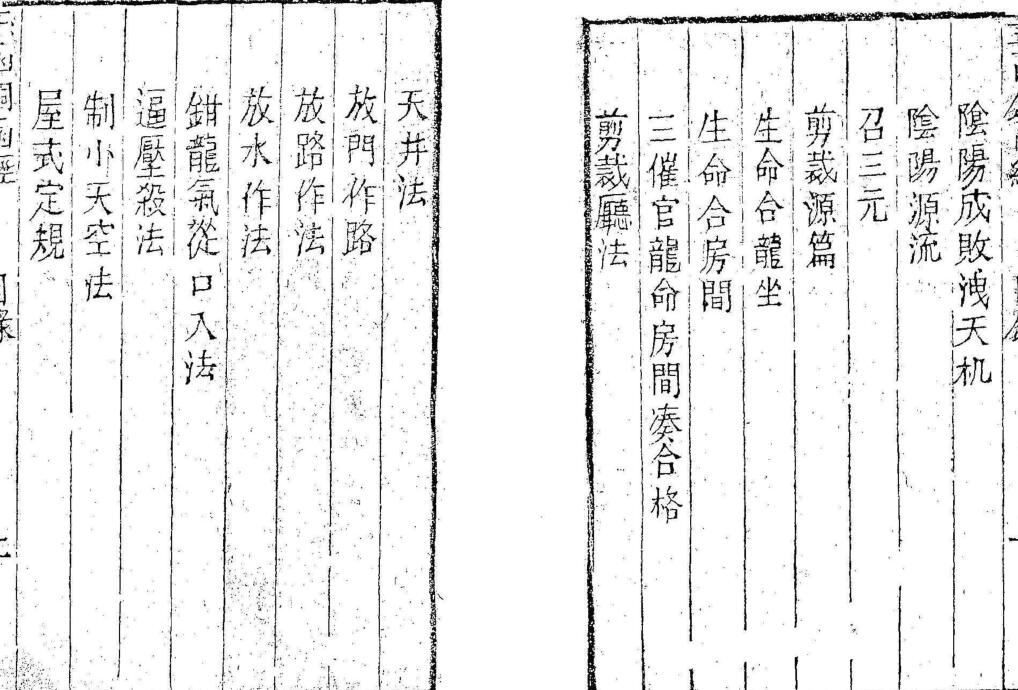 陰陽成敗洩天机
陰陽源流
召三元
剪裁源篇
生命合龍坐
生命合房間
三催官龍命房間湊合格
剪裁廳法
天井法
放門作路
放路作法
放水作法
鉗龍氣從口入法
逼壓殺法
制小天空法
屋式定規
目錄